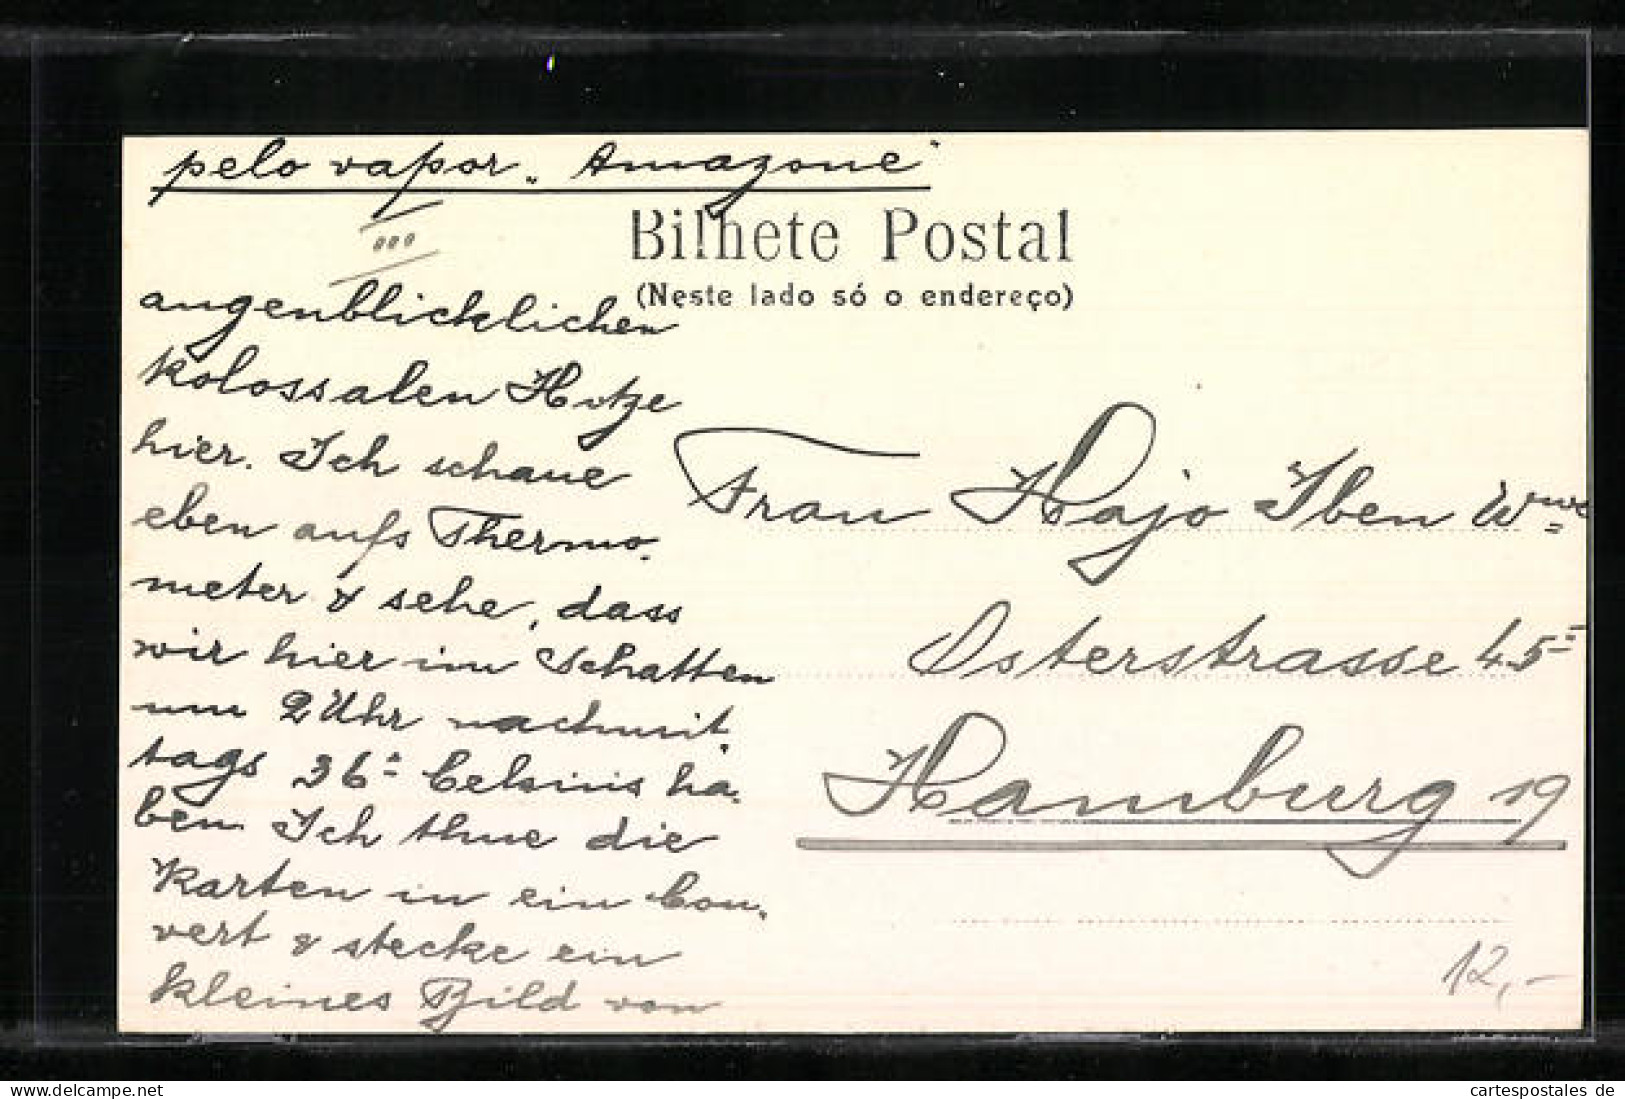 pelo vapor „Amazone"
Bilhete Postal
(Neste lado só o endereço)
augenblicklichen
kolossalen Hitze
hier. Ich schaue
eben aufs Thermo-
meter & sehe, dass
wir hier im Schatten
um 2 Uhr nachmit-
tags 36° Celsius ha-
ben. Ich thue die
Karten in ein Cou-
vert & stecke ein
kleines Bild von
Frau Hajo Iben Wwe
Osterstrasse 45
Hamburg 19
12,-
cartespostales de